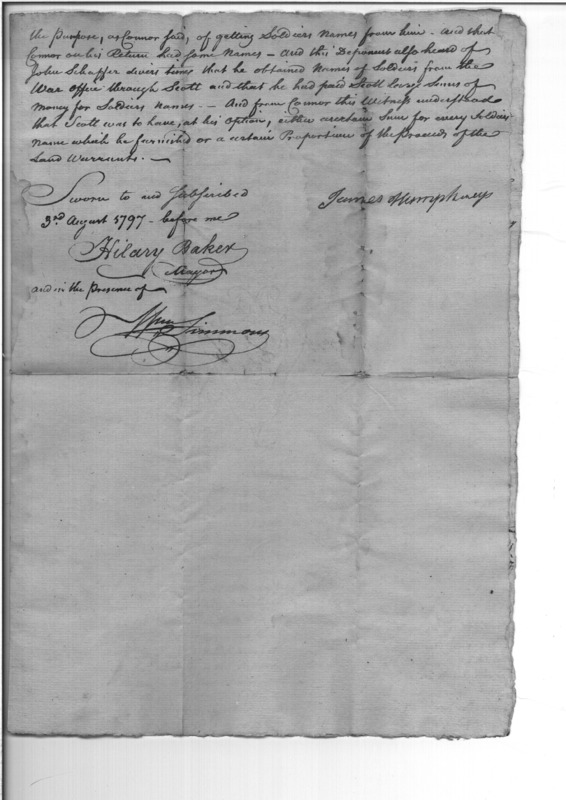 the Purpose, as Connor said, of getting Soldiers Names from him. And that
Connor on his Return had some Names – And this Deponent also heard of
John Schaffer divers times that he obtained Names of Soldiers from the
War Office through Scott and that he had paid Scott large Sums of
Money for Soldiers Names. – And from Connor this Witness understood
that Scott was to have, at his option, either a certain Sum for every Soldiers
Name which he furnished or a certain Proportion of the Proceeds of the
Land Warrants. –
Sworn to and Subscribed
James Humphreys
3rd August 1797 – before me
Hilary Baker
Mayor
and in the Presence of
Wm Simmons